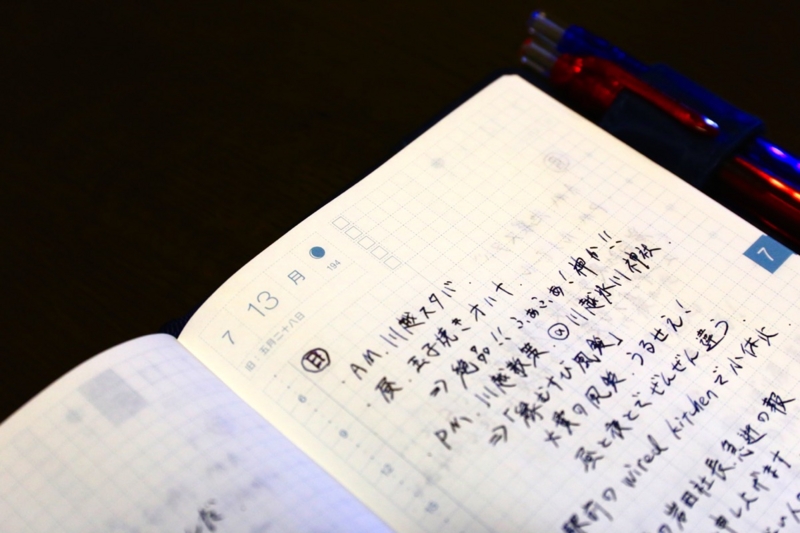 7 13 月
194
旧:五月二十八日
7
日
6
9
12
・AM.川越スタバ.
・昼.玉子焼きオハナ.
⇒絶品!!ふぁふぁ!神か!!
・PM.川越散策 川越氷川神社.
⇒「縁むすび風鈴」
大量の風鈴.うるせえ!
昼と夜とでぜんぜん違う
駅前のwired kitchenで小休止
の岩田社長.急逝の報
申し上げます